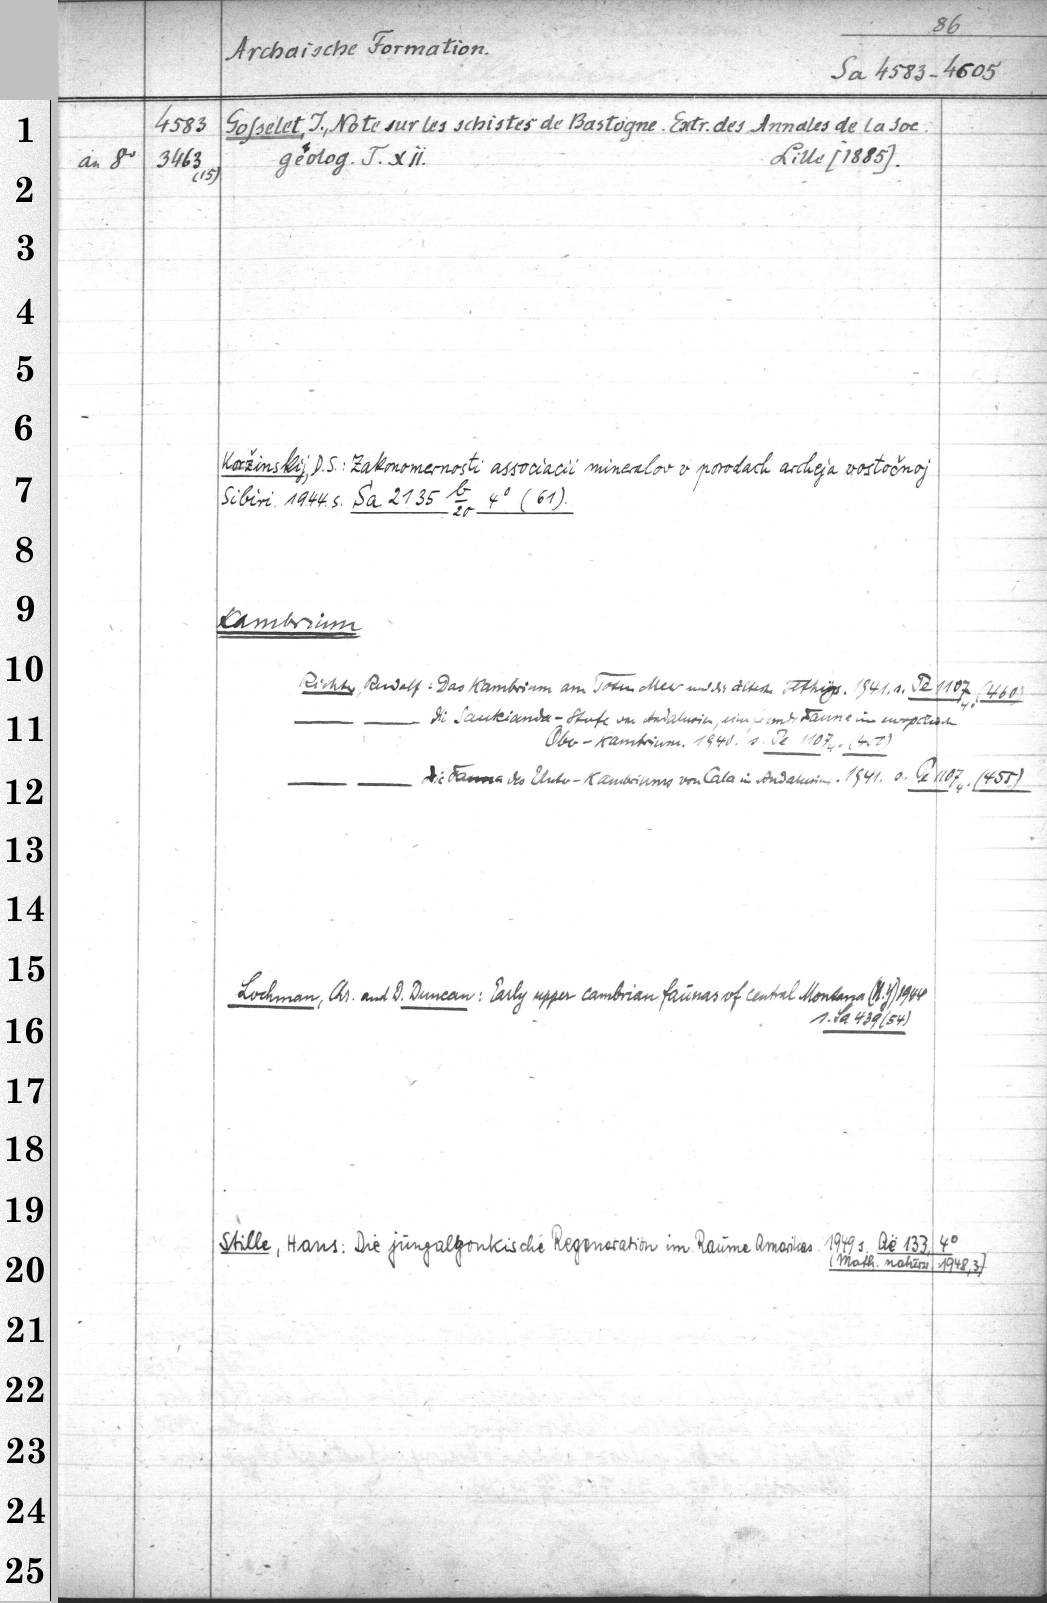 86
Archaische Formation.
Sa 4583-4605
1
4583 Gosselet, J., Note sur les schistes de Bastogne. Extr. des Annales de la Soc.
an 8° 3463 (15) géolog. T. XII. Lille [1885].
2
3
4
5
6
Koržinskij, D.S.: Zakonomernosti associacii mineralov v porodach archeja vostočnoj
7
Sibiri. 1944. s. Sa 2135 b/20 4° (61).
8
9
Kambrium
10
Richter, Rudolf: Das Kambrium am Toten Meer und die älteste Tethys. 1941. s. Pe 1107 4°. (460)
11
Die Saukianda-Stufe von Andalusien, eine fremde Fauna im europäischen
Ober-Kambrium. 1940. s. Pe 1107 4°. (450)
12
Die Fauna des Unter-Kambriums von Cala in Andalusien. 1941. s. Pe 1107 4°. (455)
13
14
15
Lochman, Chr. and D. Duncan: Early upper cambrian faunas of central Montana (N.Y) 1944
16
s. Sa 439 (54)
17
18
19
Stille, Hans: Die jungalgonkische Regeneration im Raume Amerikas. 1949 s. Ae 133. 4°
20
(Math. naturw. 1948,3)
21
22
23
24
25